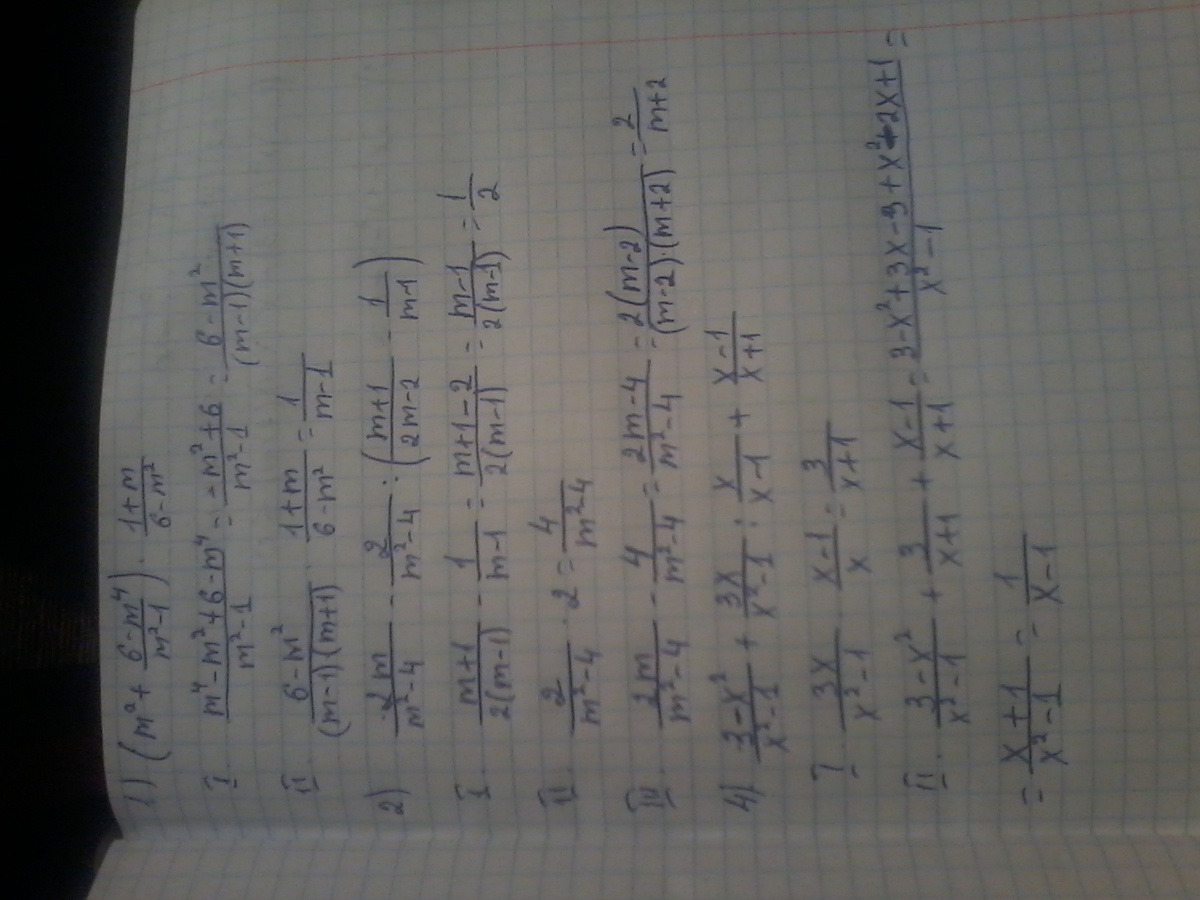 1) (m² + (6-m⁴)/(m²-1)) · (1+m)/(6-m²)
I. (m⁴-m²+6-m⁴)/(m²-1) = (-m²+6)/(m²-1) = (6-m²)/((m-1)(m+1))
II. (6-m²)/((m-1)(m+1)) · (1+m)/(6-m²) = 1/(m-1)
2) 2m/(m²-4) - 2/(m²-4) : ((m+1)/(2m-2) - 1/(m-1))
I. (m+1)/(2(m-1)) - 1/(m-1) = (m+1-2)/(2(m-1)) = (m-1)/(2(m-1)) = 1/2
II. 2/(m²-4) · 2 = 4/(m²-4)
III. 2m/(m²-4) - 4/(m²-4) = (2m-4)/(m²-4) = 2(m-2)/((m-2)·(m+2)) = 2/(m+2)
4) (3-x²)/(x²-1) + 3x/(x²-1) : x/(x-1) + (x-1)/(x+1)
I. 3x/(x²-1) · (x-1)/x = 3/(x+1)
II. (3-x²)/(x²-1) + 3/(x+1) + (x-1)/(x+1) = (3-x²+3x-3+x²-2x+1)/(x²-1) =
= (x+1)/(x²-1) = 1/(x-1)